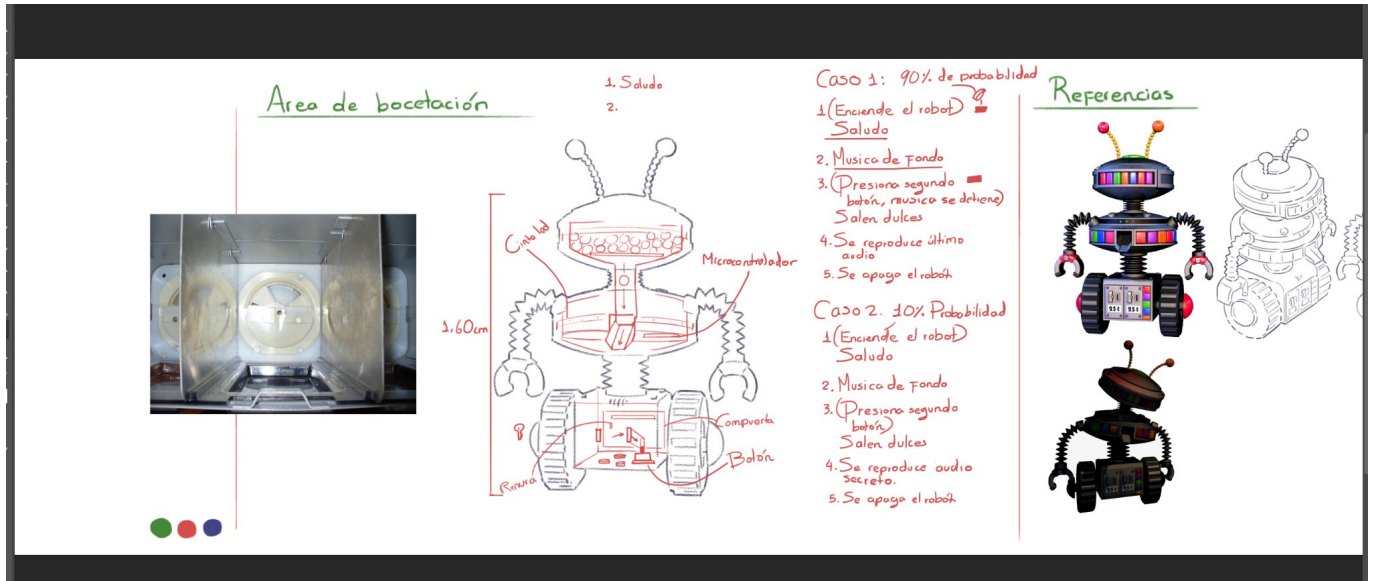 Area de bocetación
1. Saludo
2.
1.60cm
Microcontrolador
Compuerta
Botón
Caso 1: 90% de probabilidad
1 (Enciende el robot)
Saludo
2. Musica de Fondo
3. (Presiona segundo
botón, musica se detiene)
Salen dulces
4. Se reproduce último
audio
5. Se apaga el robot
Caso 2. 10% Probabilidad
1 (Enciende el robot)
Saludo
2. Musica de Fondo
3. (Presiona segundo
botón)
Salen dulces
4. Se reproduce audio
secreto.
5. Se apaga el robot
Referencias
25¢ 25¢